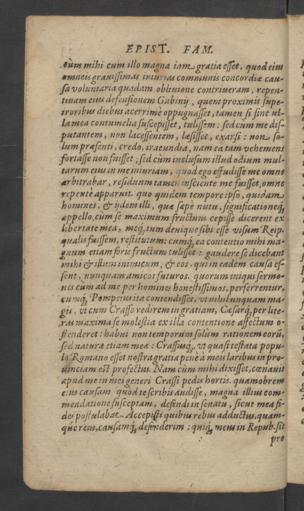 EPIST. FAM.
cum mihi cum illo magna iam gratia esset, quod eius
omneis grauissimas iniurias communis concordiæ cau-
sa voluntaria quadam obliuione contriueram, repen-
tinam eius defensionem Gabiny, quem proximis supe-
rioribus diebus acerrimè oppugnasset, tamen si sine vl-
la mea contumelia suscepisset, tulissem: sed cum me dis-
putantem, non lacessentem, læsisset, exarsi: non so-
lum præsenti, credo, iracundia, nam ea tam vehemens
fortasse non fuisset, sed cum inclusum illud odium mul-
tarum eius in me iniuriarum, quod ego effudisse me omne
arbitrabar, residuum tamen insciente me fuisset, omne
repentè apparuit. quo quidem tempore ipso, quidam
homines, & ijdem illi, quos sæpe nutu, significationeq́;
appello, cum se maximum fructum cepisse dicerent ex
libertate mea, meq́; tum denique sibi esse visum Reip.
qualis fuissem, restitutum: cumq́; ea contentio mihi ma-
gnum etiam foris fructum tulisset: gaudere se dicebant
mihi & illum inimicum, & eos, qui in eadem causa es-
sent, nunquam amicos futuros. quorum iniqui sermo-
nes cum ad me per homines honestissimos, perferrentur,
cumq́; Pompeius ita contendisset, vt nihil unquam ma-
gis, vt cum Crasso redirem in gratiam, Cæsarq́; per lite-
ras maxima se molestia ex illa contentione affectum o-
stenderet: habui non temporum solum rationem eorū,
sed natura etiam mea: Crassusq́;, vt quasi testata popu-
lo Romano esset nostra gratia, penè à meis laribus in pro-
uinciam est profectus. Nam cum mihi dixisset, cœnauit
apud me in mei generi Crassi pedis hortis. quamobrem
eius causam quod te scribis audisse, magna illius com-
mendatione susceptam, defendi in senatu, sicut mea fi-
des postulabat. Accepisti quibus rebus adductus, quam-
que rem, causamq́; defenderim: quisq́; meus in Repub. sit
pro